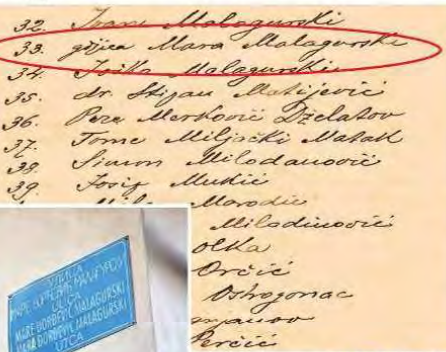 32. Ivan Malagurski
33. gđjica Mara Malagurski
34. Joška Malagurski
35. dr. Stipan Matijević
36. Pera Merković Dželatov
37. Tome Miljački Matak
38. Simun Milodanović
39. Josip Mukić
Marodić
Milodinović
Orčić
Ostrogonac
Perčić
УЛИЦА
МАРЕ ЂОРЂЕВИЋ МАЛАГУРСКИ
ULICA
MARE ĐORĐEVIĆ MALAGURSKI
MARA ĐORĐEVIĆ MALAGURSKI
UTCA